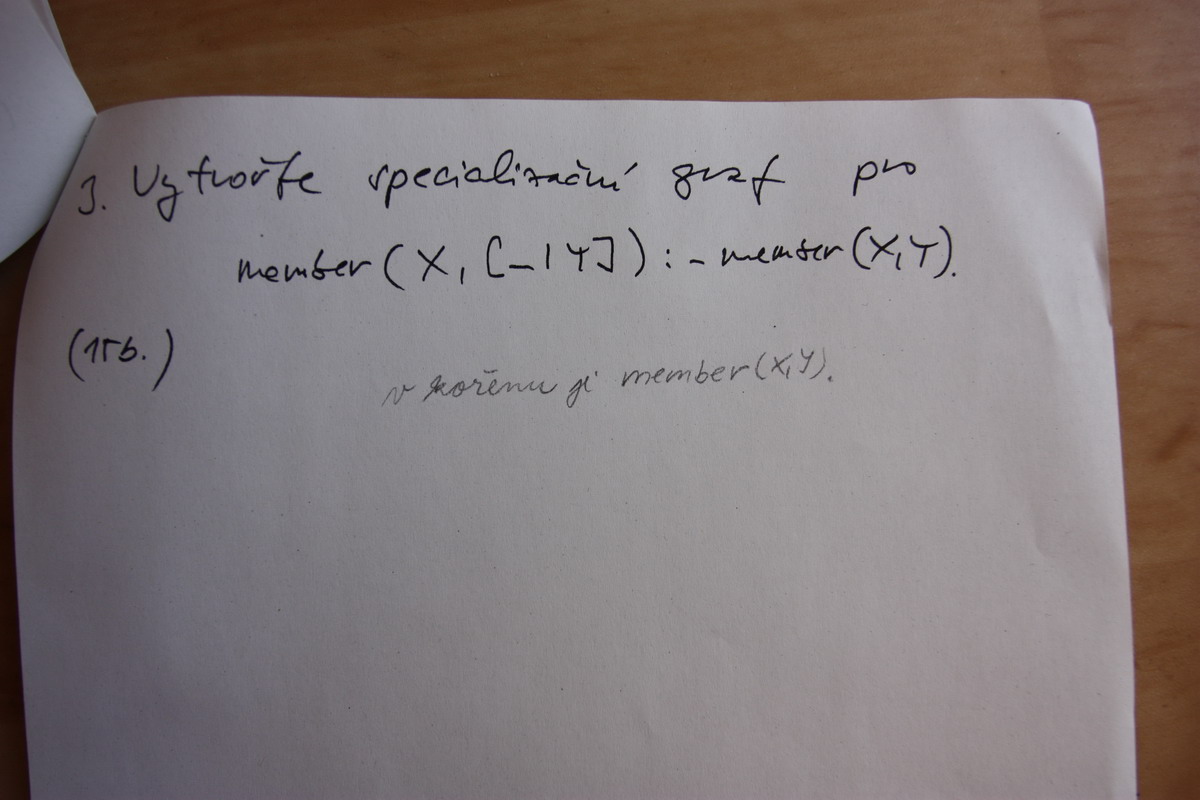 3. Vytvořte specializační graf pro
member(X,[_|Y]):-member(X,Y).
(15b.)
v kořenu je member(X,Y).